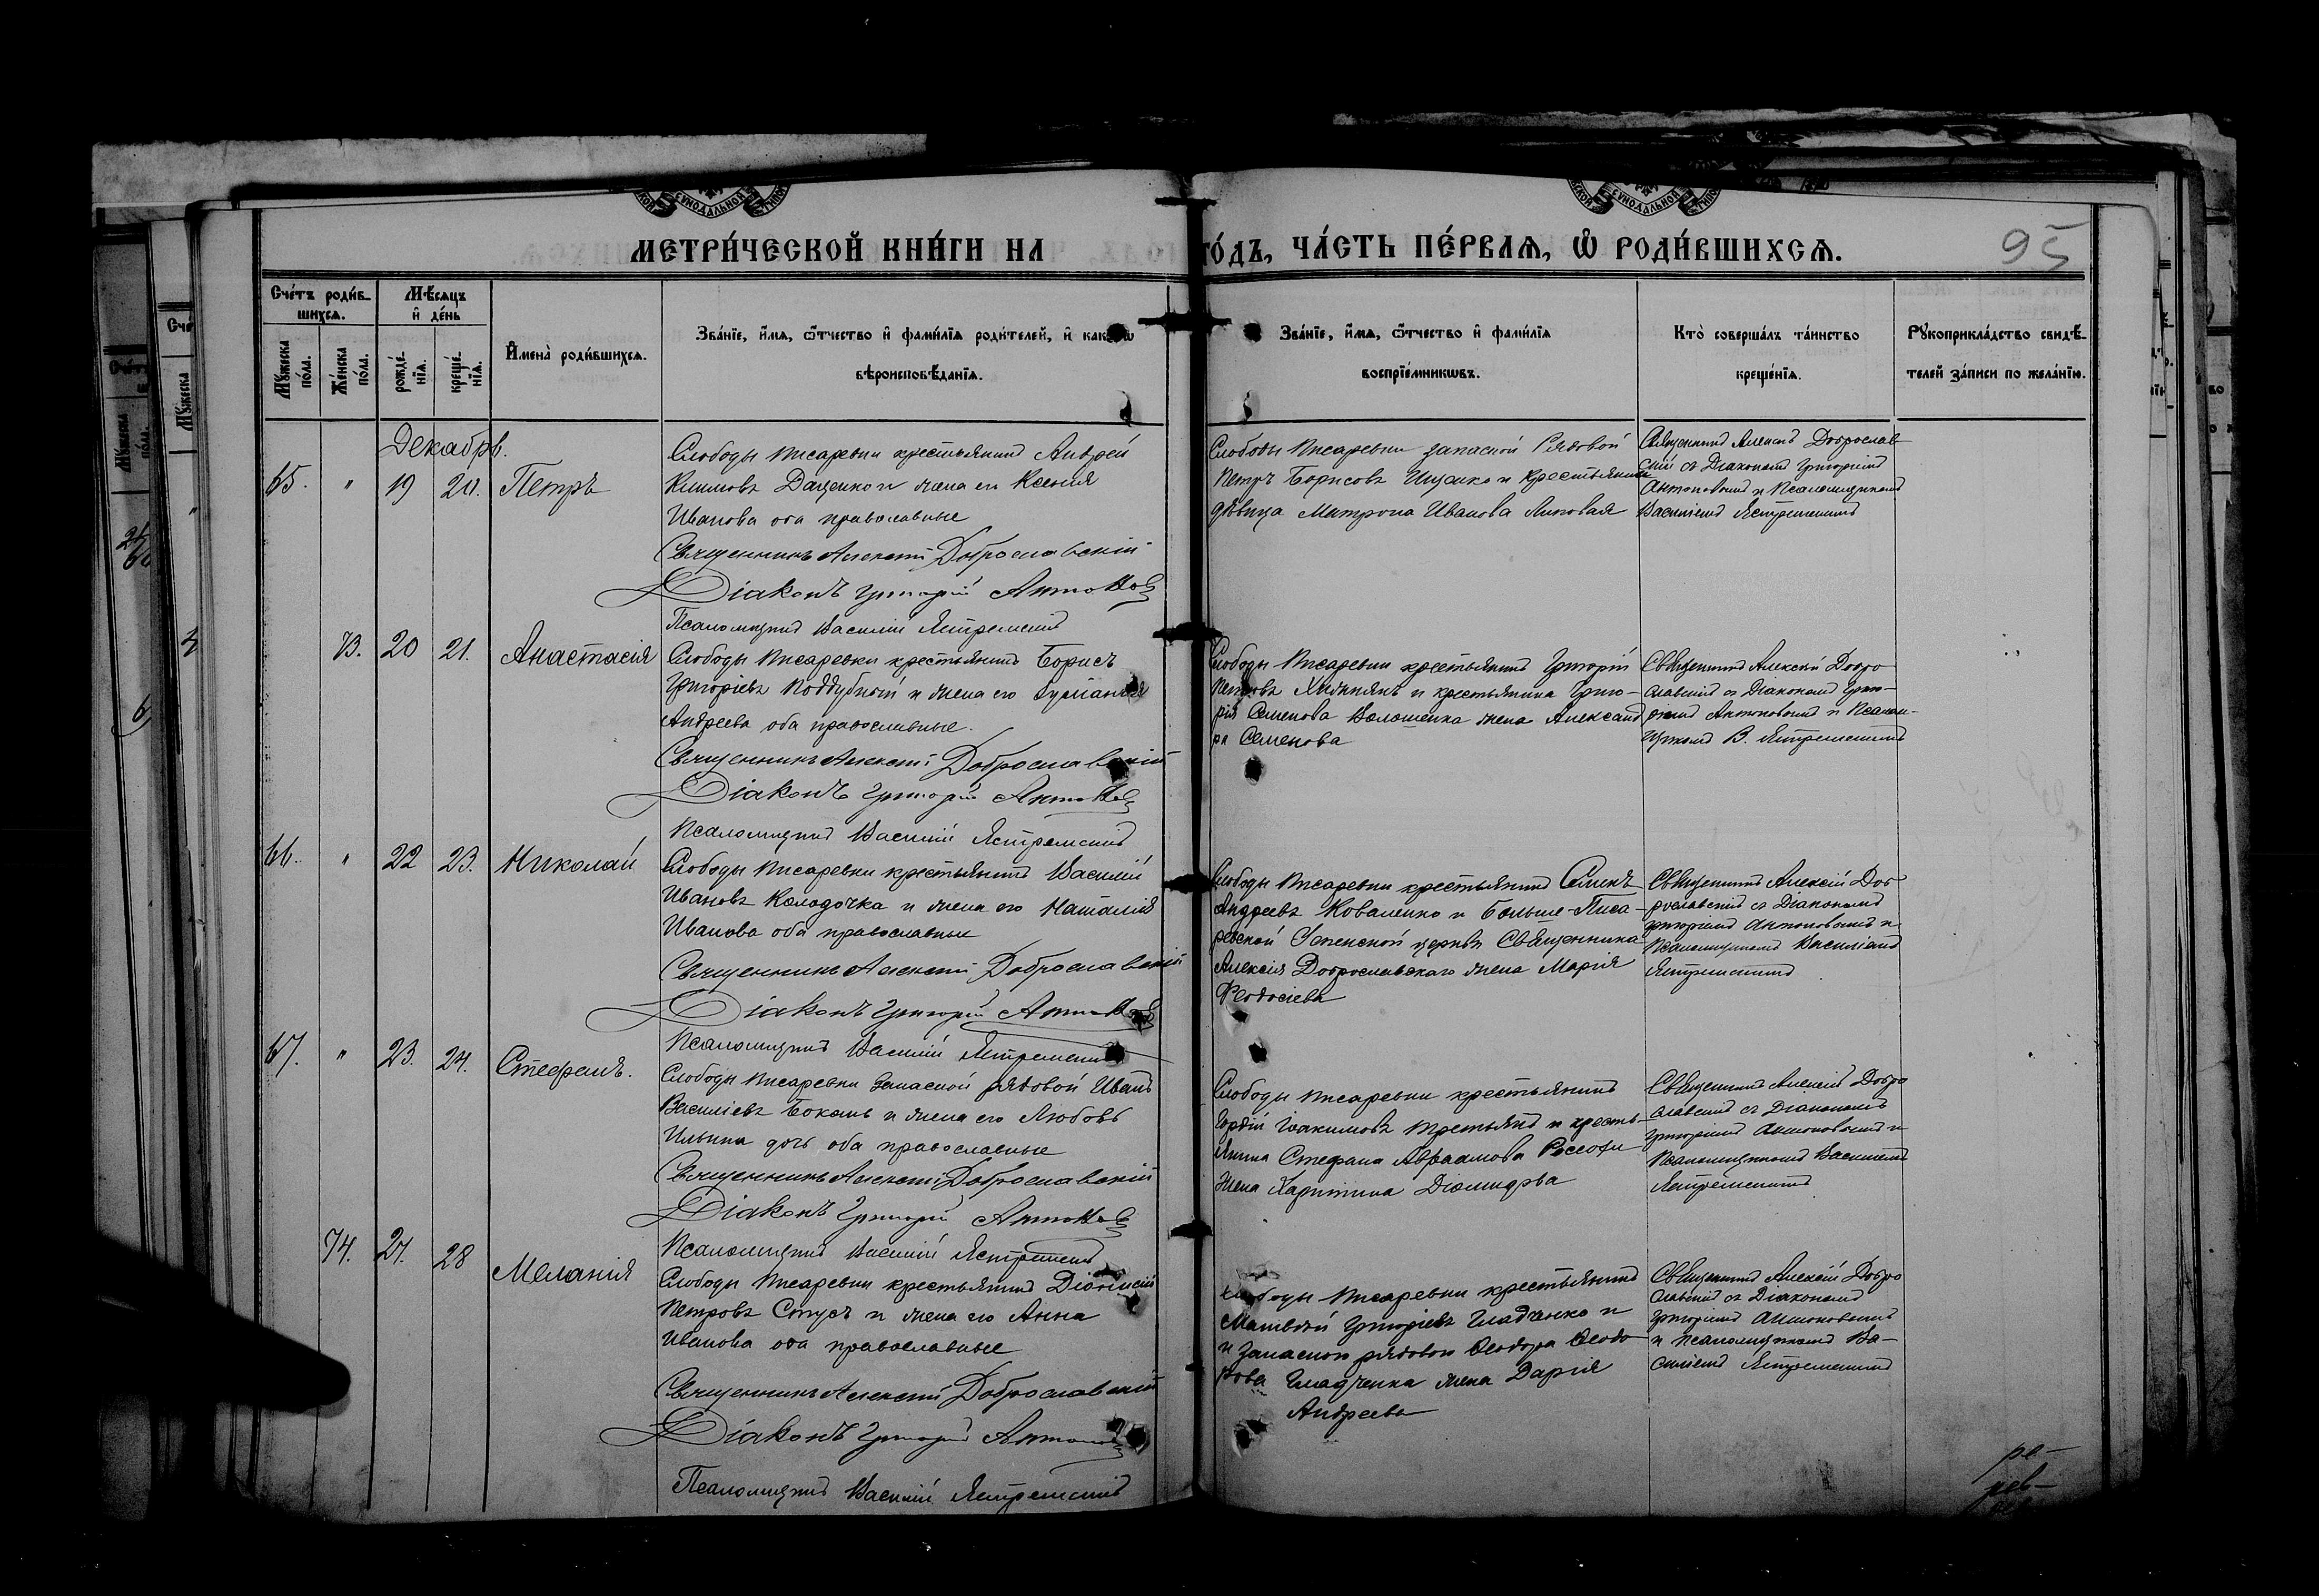 МЕТРИ́ЧЕСКОЙ КНИ́ГИ НА
ГО́ДЪ, ЧА́СТЬ ПЕ́РВАЯ, Ѡ РОДИ́ВШИХСЯ.
95
Сче́тъ роди́в-
шихся.
Мѣ́сяцъ
и де́нь
Му́жеска
по́ла.
Же́нска
по́ла.
рожде́-
нїя.
креще́-
нїя.
Имена̀ роди́вшихся.
Зва́нїе, и́мя, ѻ́тчество и фами́лїя роди́телей, и како́гѡ
вѣроисповѣ́данїя.
Зва́нїе, и́мя, ѻ́тчество и фами́лїя
воспрїе́мникѡвъ.
Кто̀ соверша́лъ та́инство
креще́нїя.
Рꙋкоприкла́дство свидѣ́-
телей за́писи по жела́нїю.
Декабрь.
65. " 19 20. Петръ
Слободы Писаревки крестьянинъ Андрей
Климовъ Даценко и жена его Ксенія
Иванова оба православные
Священникъ Алексій Доброславскій
Діаконъ Григорій Антоновъ
Псаломщикъ Василій Ястремскій
Слободы Писаревки запасной Рядовой
Петръ Борисовъ Ищенко и крестьянская
дѣвица Матрона Иванова Липовая
Священникъ Алексій Доброслав-
скій съ Діакономъ Григоріемъ
Антоновымъ и Псаломщикомъ
Василіемъ Ястремскимъ
73. 20 21. Анастасія
Слободы Писаревки крестьянинъ Борисъ
Григоріевъ Поддубный и жена его Іуліанія
Андреева оба православные.
Священникъ Алексій Доброславскій
Діаконъ Григорій Антоновъ
Псаломщикъ Василій Ястремскій
Слободы Писаревки крестьянинъ Григорій
Петровъ и крестьянина Григо-
рія Семенова Волошенка жена Александ
ра Семенова
Священникъ Алексій Добро
славскій съ Діакономъ Григо-
ріемъ Антоновымъ и Псалом-
щикомъ В. Ястремскимъ
66. " 22 23. Николай
Слободы Писаревки крестьянинъ Василій
Ивановъ Колодочка и жена его Наталія
Иванова оба православные
Священникъ Алексій Доброславскій
Діаконъ Григорій Антоновъ
Псаломщикъ Василій Ястремскій
Слободы Писаревки крестьянинъ Семенъ
Андреевъ Коваленко и Больше-Писа-
ревской Успенской церкви Священника
Алексія Доброславскаго жена Марія
Феодосіева
Священникъ Алексій Доб-
рославскій съ Діакономъ
Григоріемъ Антоновымъ и
Псаломщикомъ Василіемъ
Ястремскимъ
67. " 23. 24. Стефанъ.
Слободы Писаревки Запасной рядовой Иванъ
Василіевъ Бокань и жена его Любовь
Ильина дочь оба православные
Священникъ Алексій Доброславскій
Діаконъ Григорій Антоновъ
Псаломщикъ Василій Ястремскій
Слободы Писаревки крестьянинъ
Гордій Іоакимовъ Третьякъ и кресть-
янина Стефана Авраамова
жена Харитина Діомидова
Священникъ Алексій Добро
славскій съ Діакономъ
Григоріемъ Антоновымъ и
Псаломщикомъ Василіемъ
Ястремскимъ
74. 27. 28 Меланія
Слободы Писаревки крестьянинъ Діонисій
Петровъ Стусъ и жена его Анна
Иванова оба православные
Священникъ Алексій Доброславскій
Діаконъ Григорій Антоновъ
Псаломщикъ Василій Ястремскій
Слободы Писаревки крестьянинъ
Матвѣй Григоріевъ Гладченко и
и Запасного рядового Ѳеодора Ѳеодо
рова Гладченка жена Дарія
Андреева
Священникъ Алексій Добро
славскій съ Діакономъ
Григоріемъ Антоновымъ
и Псаломщикомъ Ва-
силіемъ Ястремскимъ
ре-
рев-